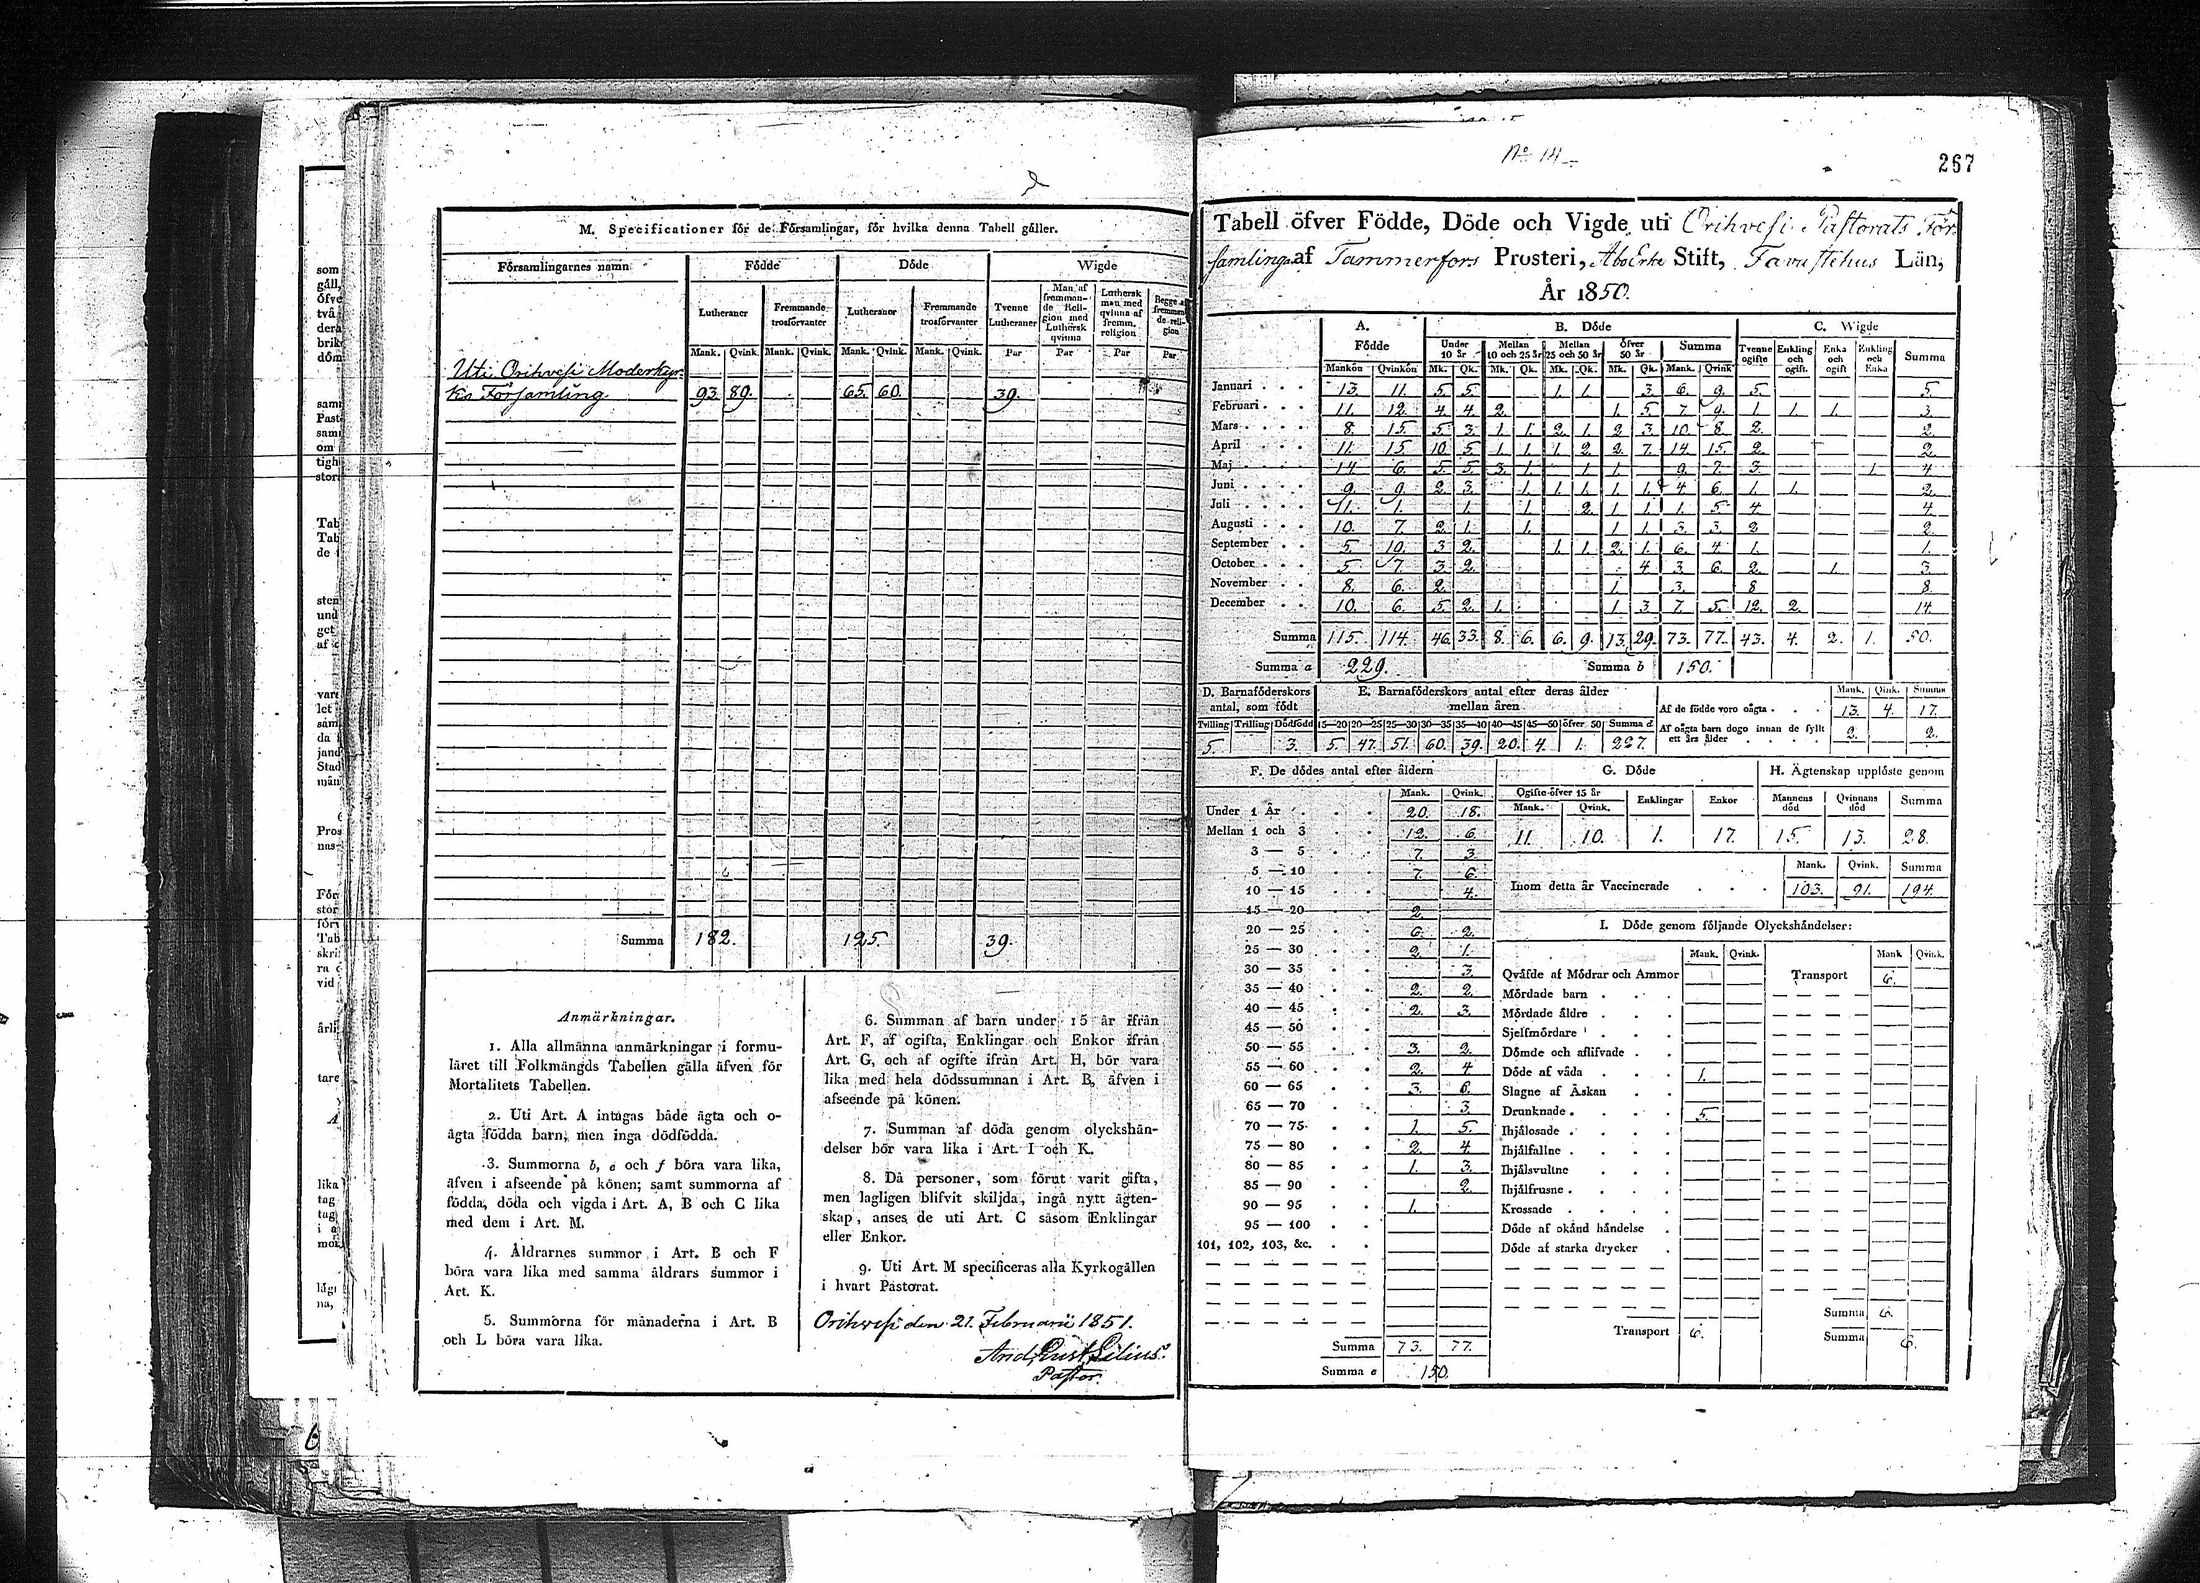 M. Specificationer för de Församlingar, för hvilka denna Tabell gäller.
Församlingarnes namn Födde Döde Wigde
Lutheraner Fremmande trosförvanter Lutheraner Fremmande trosförvanter Tvenne Lutheraner Man af fremmande Religion med Luthersk qvinna Luthersk man med qvinna af fremm. religion Begge af fremmande religion
Mank. Qvink. Mank. Qvink. Mank. Qvink. Mank. Qvink. Par Par Par Par
Uti Orihvesi Moderkyr-
ko Församling 93. 89. 65. 60. 39.
Summa 182. 125. 39.
Anmärkningar.
1. Alla allmänna anmärkningar i formu-
läret till Folkmängds Tabellen gälla äfven för
Mortalitets Tabellen.
2. Uti Art. A intagas både ägta och o-
ägta födda barn, men inga dödfödda.
3. Summorna b, e och f böra vara lika,
äfven i afseende på könen; samt summorna af
födda, döda och vigda i Art. A, B och C lika
med dem i Art. M.
4. Åldrarnes summor i Art. B och F
böra vara lika med samma åldrars summor i
Art. K.
5. Summorna för månaderna i Art. B
och L böra vara lika.
6. Summan af barn under 15 år ifrån
Art. F, af ogifta, Enklingar och Enkor ifrån
Art. G, och af ogifte ifrån Art. H, bör vara
lika med hela dödssumman i Art. B, äfven i
afseende på könen.
7. Summan af döda genom olyckshän-
delser bör vara lika i Art. I och K.
8. Då personer, som förut varit gifta,
men lagligen blifvit skiljda, ingå nytt ägten-
skap, anses de uti Art. C såsom Enklingar
eller Enkor.
9. Uti Art. M specificeras alla Kyrkogällen
i hvart Pastorat.
Orihvesi den 21. Februarii 1851.
Pastor.
No 14
267
Tabell öfver Födde, Döde och Vigde uti Orihvesi Pastorats För-
samlingaf Tammerfors Prosteri, Åbo Erke Stift, Tavastehus Län,
År 1850.
A. Födde B. Döde C. Wigde
Under 10 år Mellan 10 och 25 år Mellan 25 och 50 år öfver 50 år Summa Tvenne ogifte Enkling och ogift. Enka och ogift Enkling och Enka Summa
Mankön Qvinkön Mk. Qk. Mk. Qk. Mk. Qk. Mk. Qk. Mank. Qvink
Januari 13. 11. 5. 5. 1. 1. 3. 6. 9. 5. 5.
Februari 11. 12. 4. 4. 2. 1. 5. 7. 9. 1. 1. 1. 3.
Mars 8. 15. 5. 3. 1. 1. 2. 1. 2. 3. 10. 8. 2. 2.
April 11. 15. 10. 5. 1. 1. 1. 2. 2. 7. 14. 15. 2. 2.
Maj 14. 6. 5. 5. 3. 1. 1. 1. 9. 7. 3. 1. 4.
Juni 9. 9. 2. 3. 1. 1. 1. 1. 1. 4. 6. 1. 1. 2.
Juli 11. 1. 1. 1. 2. 1. 1. 1. 5. 4. 4.
Augusti 10. 7. 2. 1. 1. 1. 1. 3. 3. 2. 2.
September 5. 10. 3. 2. 1. 1. 2. 1. 6. 4. 1. 1.
October 5. 7. 3. 2. 4. 3. 6. 2. 1. 3.
November 8. 6. 2. 1. 3. 8 8.
December 10. 6. 5. 2. 1. 1. 3. 7. 5. 12. 2. 14.
Summa 115. 114. 46. 33. 8. 6. 6. 9. 13. 29. 73. 77. 43. 4. 2. 1. 50.
Summa a 229. Summa b 150.
D. Barnaföderskors antal, som födt
Tvilling Trilling Dödfödd
5. 3.
E. Barnaföderskors antal efter deras ålder mellan åren
15—20 20—25 25—30 30—35 35—40 40—45 45—50 öfver 50 Summa d
5. 47. 51. 60. 39. 20. 4. 1. 227.
Mank. Qink. Summa
Af de födde voro oägta 13. 4. 17.
Af oägta barn dogo innan de fyllt ett års ålder 2. 2.
F. De dödes antal efter åldern
Mank. Qvink.
Under 1 År 20. 18.
Mellan 1 och 3 12. 6.
3 — 5 7. 3.
5 — 10 7. 6.
10 — 15 4.
15 — 20 2.
20 — 25 6. 2.
25 — 30 2. 1.
30 — 35 3.
35 — 40 2. 2.
40 — 45 2. 3.
45 — 50
50 — 55 3. 2.
55 — 60 2. 4.
60 — 65 3. 6.
65 — 70 3.
70 — 75 1. 5.
75 — 80 2. 4.
80 — 85 1. 3.
85 — 90 2.
90 — 95 1.
95 — 100
101, 102, 103, &c.
Summa 73. 77.
Summa e 150.
G. Döde
Ogifte öfver 15 år Enklingar Enkor
Mank. Qvink.
11. 10. 1. 17.
H. Ägtenskap upplöste genom
Mannens död Qvinnans död Summa
15. 13. 28.
Mank. Qvink. Summa
Inom detta år Vaccinerade 103. 91. 194.
I. Döde genom följande Olyckshändelser:
Mank. Qvink. Mank Qvink.
Qväfde af Mödrar och Ammor Transport 6.
Mördade barn
Mördade äldre
Sjelfmördare
Dömde och aflifvade
Döde af våda 1.
Slagne af Åskan
Drunknade 5.
Ihjälosade
Ihjälfallne
Ihjälsvultne
Ihjälfrusne
Krossade
Döde af okänd händelse
Döde af starka drycker
Summa 6.
Transport 6. Summa 6.